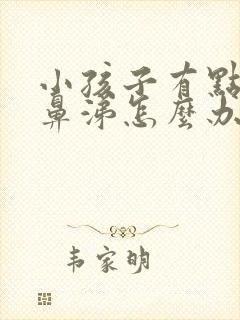 小孩子有點
鼻涕怎麼办
韦家明